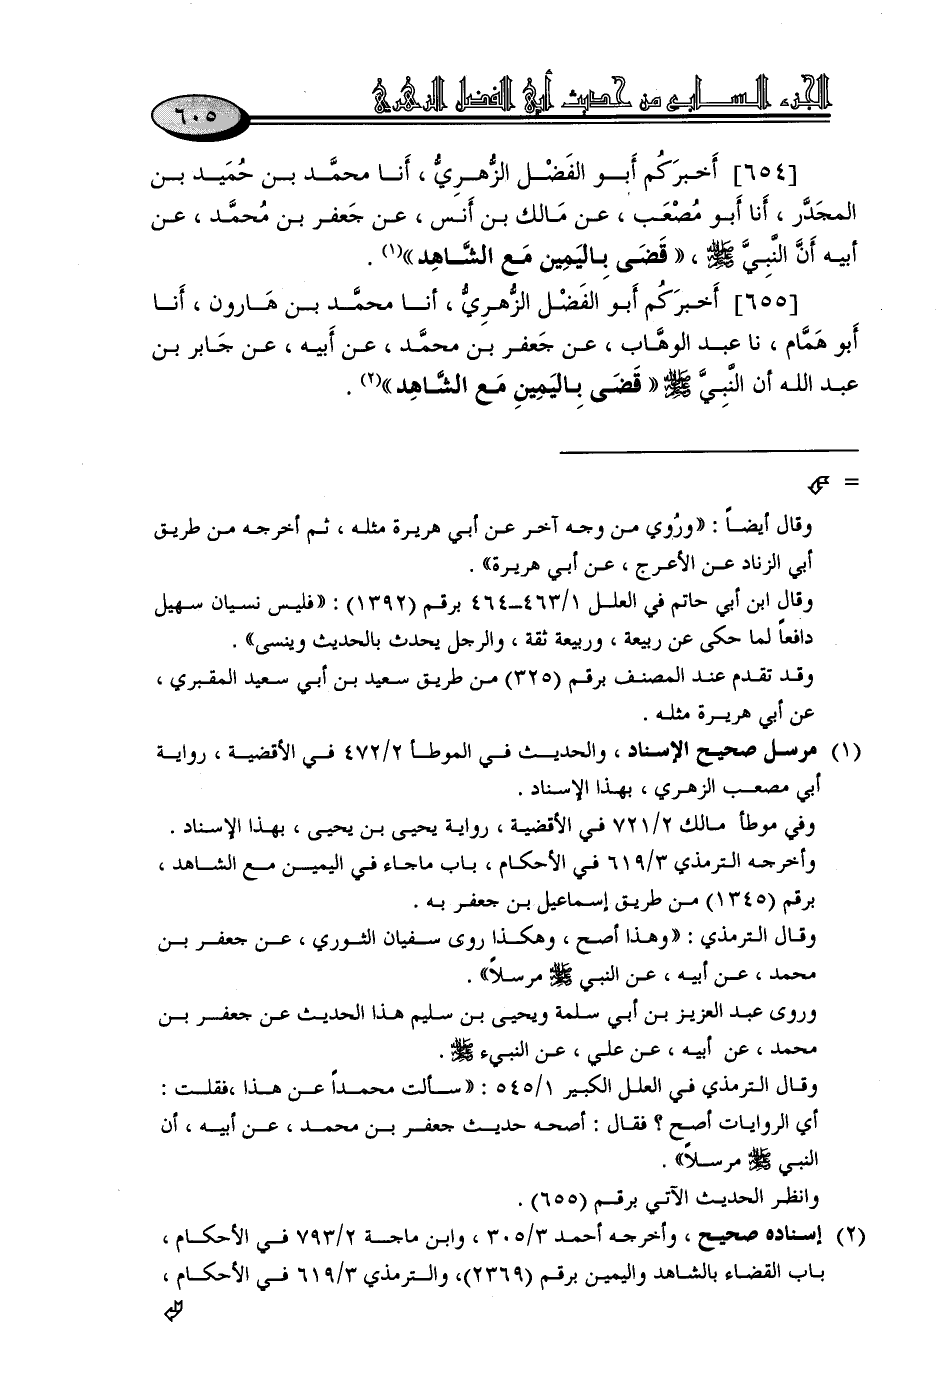 الجزء السابع من حديث أبي الفضل الزهري
٦٠٥
[٦٥٤] أَخبرَكُم أَبو الفَضْل الزُّهريُّ ، أَنا محمَّد بن حُمَيد بن
المجَدَّر ، أَنا أَبو مُصْعَب ، عن مَالك بن أَنس ، عن جَعفر بن مُحمَّد ، عن
أبيه أَنَّ النَّبيَّ ﷺ ، « قَضَى بِاليَمينِ مَع الشَّاهِد »(١) .
[٦٥٥] أَخبرَكُم أَبو الفَضْل الزُّهريُّ ، أَنا محمَّد بن هَارون ، أَنا
أَبو هَمَّام ، نا عبد الوهَّاب ، عن جَعفر بن محمَّد ، عن أَبيه ، عن جَابر بن
عبد الله أن النَّبيَّ ﷺ « قَضَى بِاليَمِينِ مَع الشَّاهِد »(٢) .
=
وقال أيضاً : «ورُوي من وجه آخر عن أبي هريرة مثله ، ثم أخرجه من طريق
أبي الزناد عن الأعرج ، عن أبي هريرة» .
وقال ابن أبي حاتم في العلل ٤٦٣/١–٤٦٤ برقم (١٣٩٢) : «فليس نسيان سهيل
دافعاً لما حكى عن ربيعة ، وربيعة ثقة ، والرجل يحدث بالحديث وينسى» .
وقد تقدم عند المصنف برقم (٣٢٥) من طريق سعيد بن أبي سعيد المقبري ،
عن أبي هريرة مثله .
(١) مرسل صحيح الإسناد ، والحديث في الموطأ ٤٧٢/٢ في الأقضية ، رواية
أبي مصعب الزهري ، بهذا الإسناد .
وفي موطأ مالك ٧٢١/٢ في الأقضية ، رواية يحيى بن يحيى ، بهذا الإسناد .
وأخرجه الترمذي ٦١٩/٣ في الأحكام ، باب ماجاء في اليمين مع الشاهد ،
برقم (١٣٤٥) من طريق إسماعيل بن جعفر به .
وقال الترمذي : «وهذا أصح ، وهكذا روى سفيان الثوري ، عن جعفر بن
محمد ، عن أبيه ، عن النبي ﷺ مرسلاً» .
وروى عبد العزيز بن أبي سلمة ويحيى بن سليم هذا الحديث عن جعفر بن
محمد ، عن أبيه ، عن علي ، عن النبيء ﷺ .
وقال الترمذي في العلل الكبير ٥٤٥/١ : «سألت محمداً عن هذا ،فقلت :
أي الروايات أصح ؟ فقال : أصحه حديث جعفر بن محمد ، عن أبيه ، أن
النبي ﷺ مرسلاً» .
وانظر الحديث الآتي برقم (٦٥٥) .
(٢) إسناده صحيح ، وأخرجه أحمد ٣٠٥/٣ ، وابن ماجة ٧٩٣/٢ في الأحكام ،
باب القضاء بالشاهد واليمين برقم (٢٣٦٩)، والترمذي ٦١٩/٣ في الأحكام ،